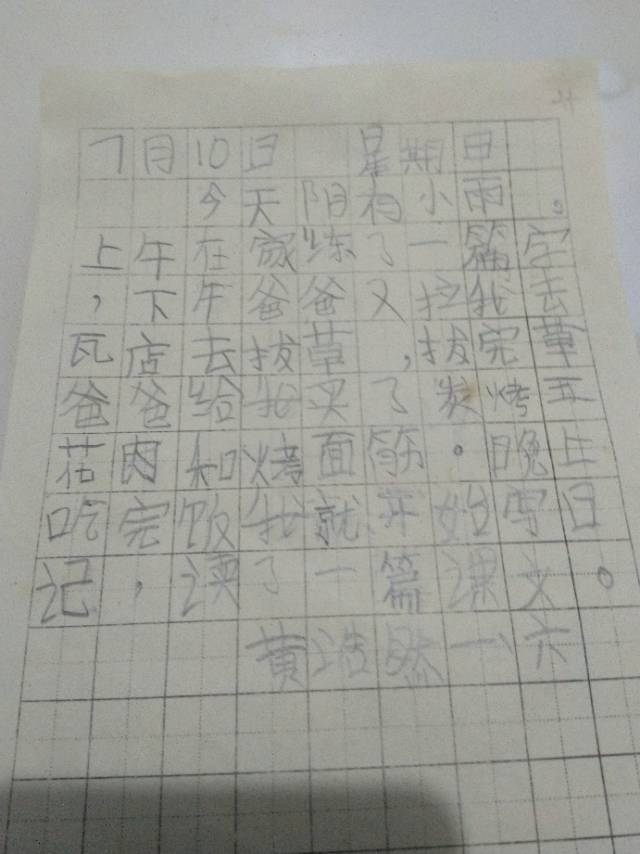 7月10日 星期日
今天阴有小雨。
上午在家练了一篇字
，下午爸爸又拉我去
瓦店去拔草，拔完草
爸爸给我买了炭烤五
花肉和烤面筋。晚上
吃完饭我就开始写日
记，读了一篇课文。
黄浩然一、六